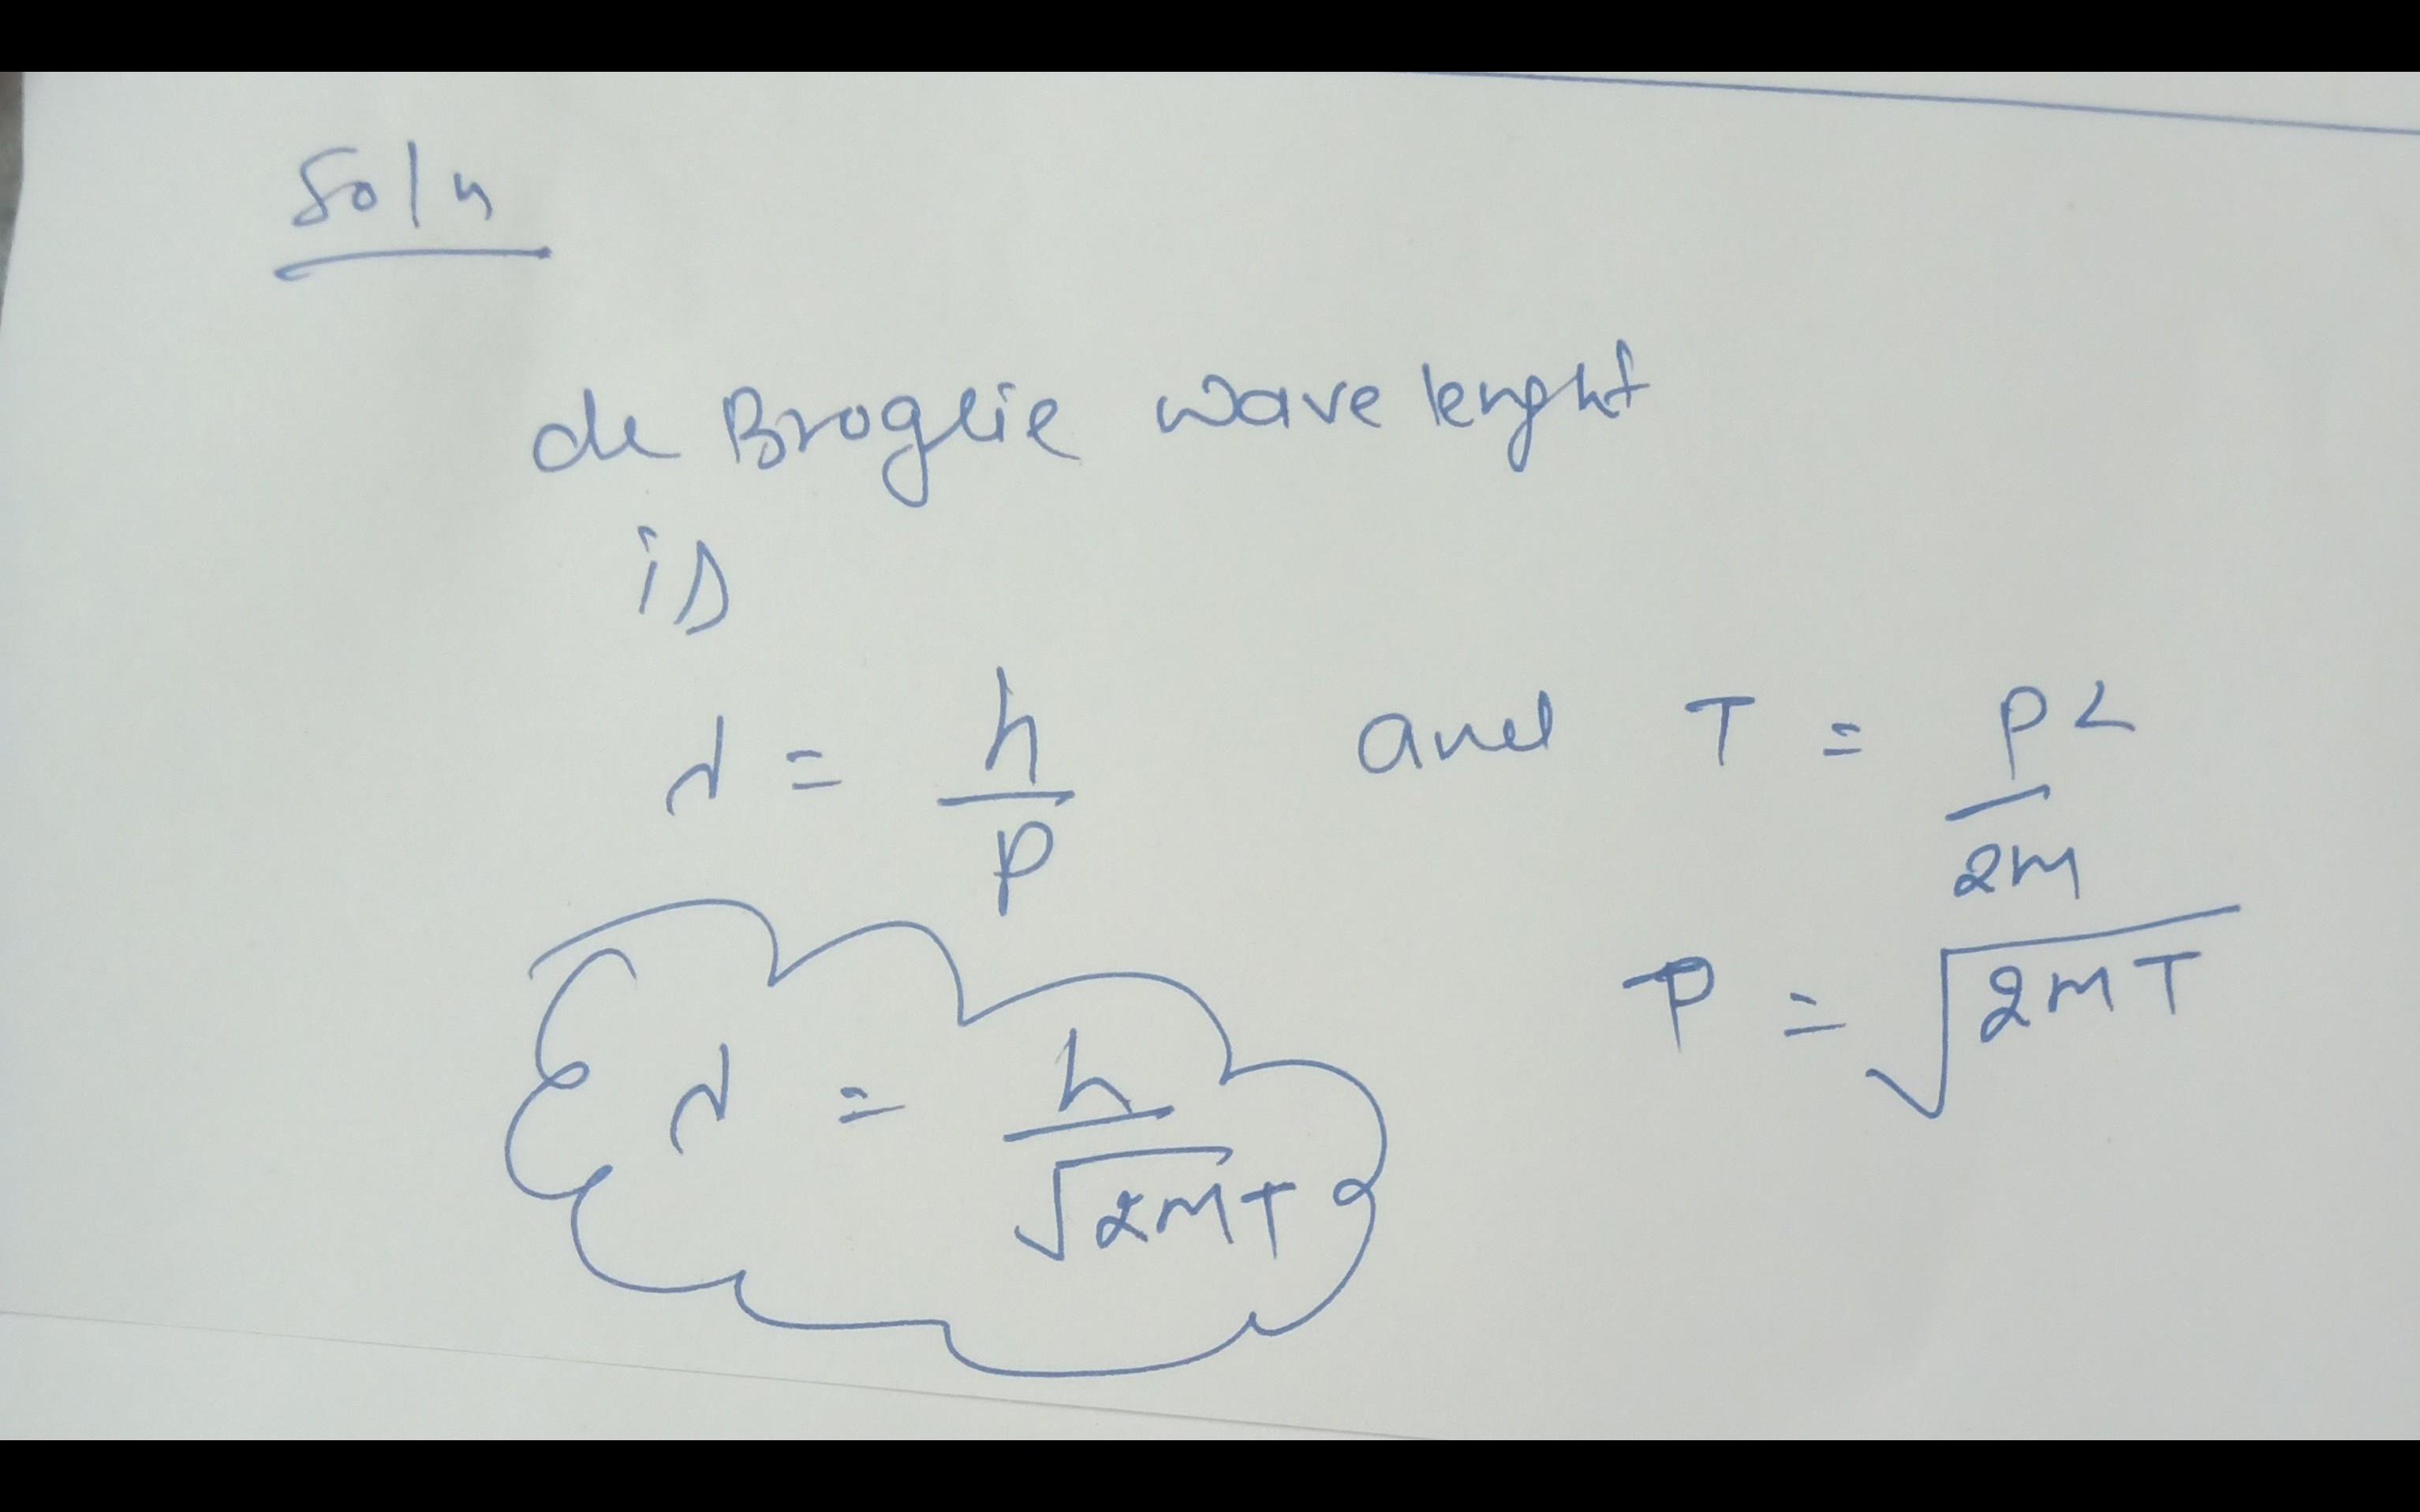 Soln
de Broglie wave lenght
is
λ = h/p and T = p²/2m
P = √2mT
λ = h/√2mT